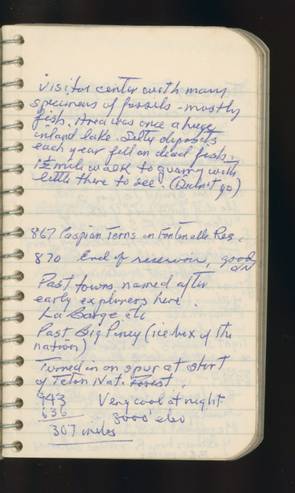 visitor center with many
specimens of fossils - mostly
fish. Area was once a huge
inland lake. Silty deposits
each year fell on dead fish.
1½ mile walk to quarry with
little there to see. (Didn't go)
867 Caspian Terns in Fontenelle Res.
870 End of reservoir, good
Past towns named after
early explorers here.
La Barge etc
Past Big Piney (ice box of the
nation)
Turned in on spur at start
of Teton Nat. Forest.
943 Very cool at night
636 8000' elev
307 miles